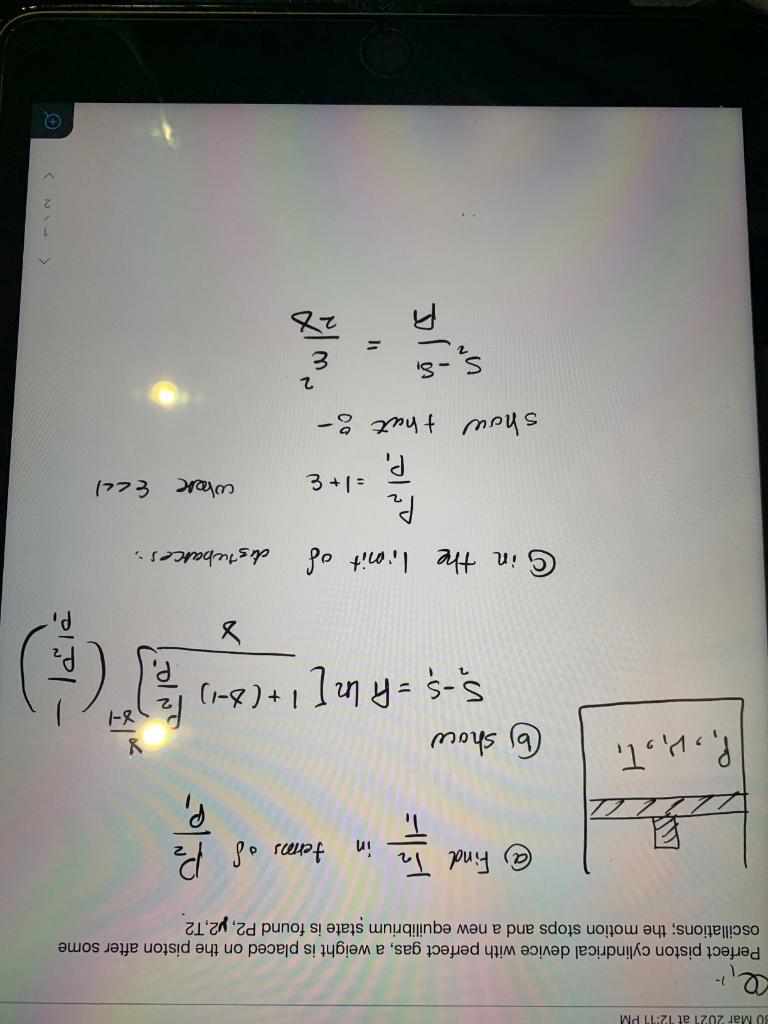 30 Mar 2021 at 12:11 PM
Q1:-
Perfect piston cylindrical device with perfect gas, a weight is placed on the piston after some
oscillations; the motion stops and a new equilibrium state is found P2, v2,T2.
P₁, V₁, T₁
ⓐ Find T₂/T₁ in terms of P₂/P₁
ⓑ show
S₂-S₁ = R ln [ (1+(γ-1) P₂/P₁)/γ ]^(γ/(γ-1)) (1/(P₂/P₁))
ⓒ in the limit of disturbances:
P₂/P₁ = 1+ε where ε<<1
show that :-
(S₂-S₁)/R = ε²/2γ
1 / 2